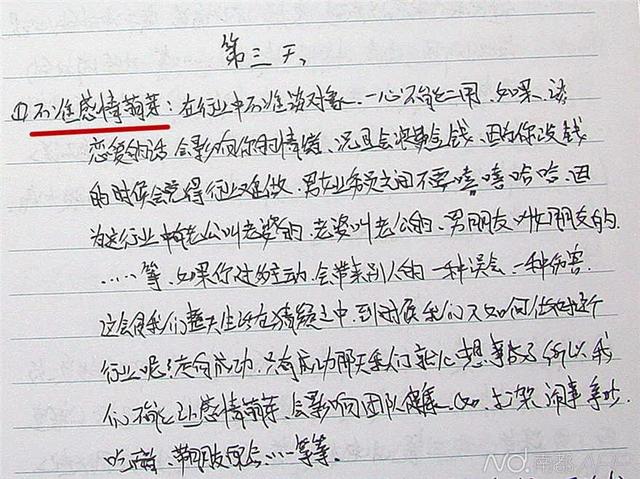 第三天
①不准感情萌芽：在行业中不准谈对象，一心不能二用，如果谈
恋爱的话会影响你的情绪、况且会浪费金钱、因为你没钱
的时候会觉得行业难做。男女业务员之间不要嘻嘻哈哈、因
为这行业中有老公叫老婆的、老婆叫老公的、男朋友叫女朋友的
……等、如果你过于主动、会带来别人的一种误会、一种伤害.
这会使我们整天生活在猜疑之中、到时候我们又如何化和这个
行业呢？走向成功、只有成功那天我们就心想事成了所以我
们不能让感情萌芽、会影响团队发展、如、打架闹事争吵
吃醋、带朋友约会……等等.
NO.南都APP